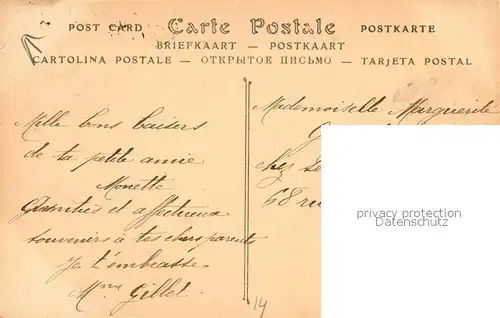 POST CARD Carte Postale POSTKARTE
BRIEFKAART — POSTKAART
CARTOLINA POSTALE — ОТКРЫТОЕ ПИСЬМО — TARJETA POSTAL
Mille bons baisers
de ta petite amie
Monette
Amitiés et affectueux
souvenirs à tes chers parents
Je t'embrasse
Mme Gillet
Mademoiselle Marguerite
G
chez
68 ru
privacy protection
Datenschutz
14